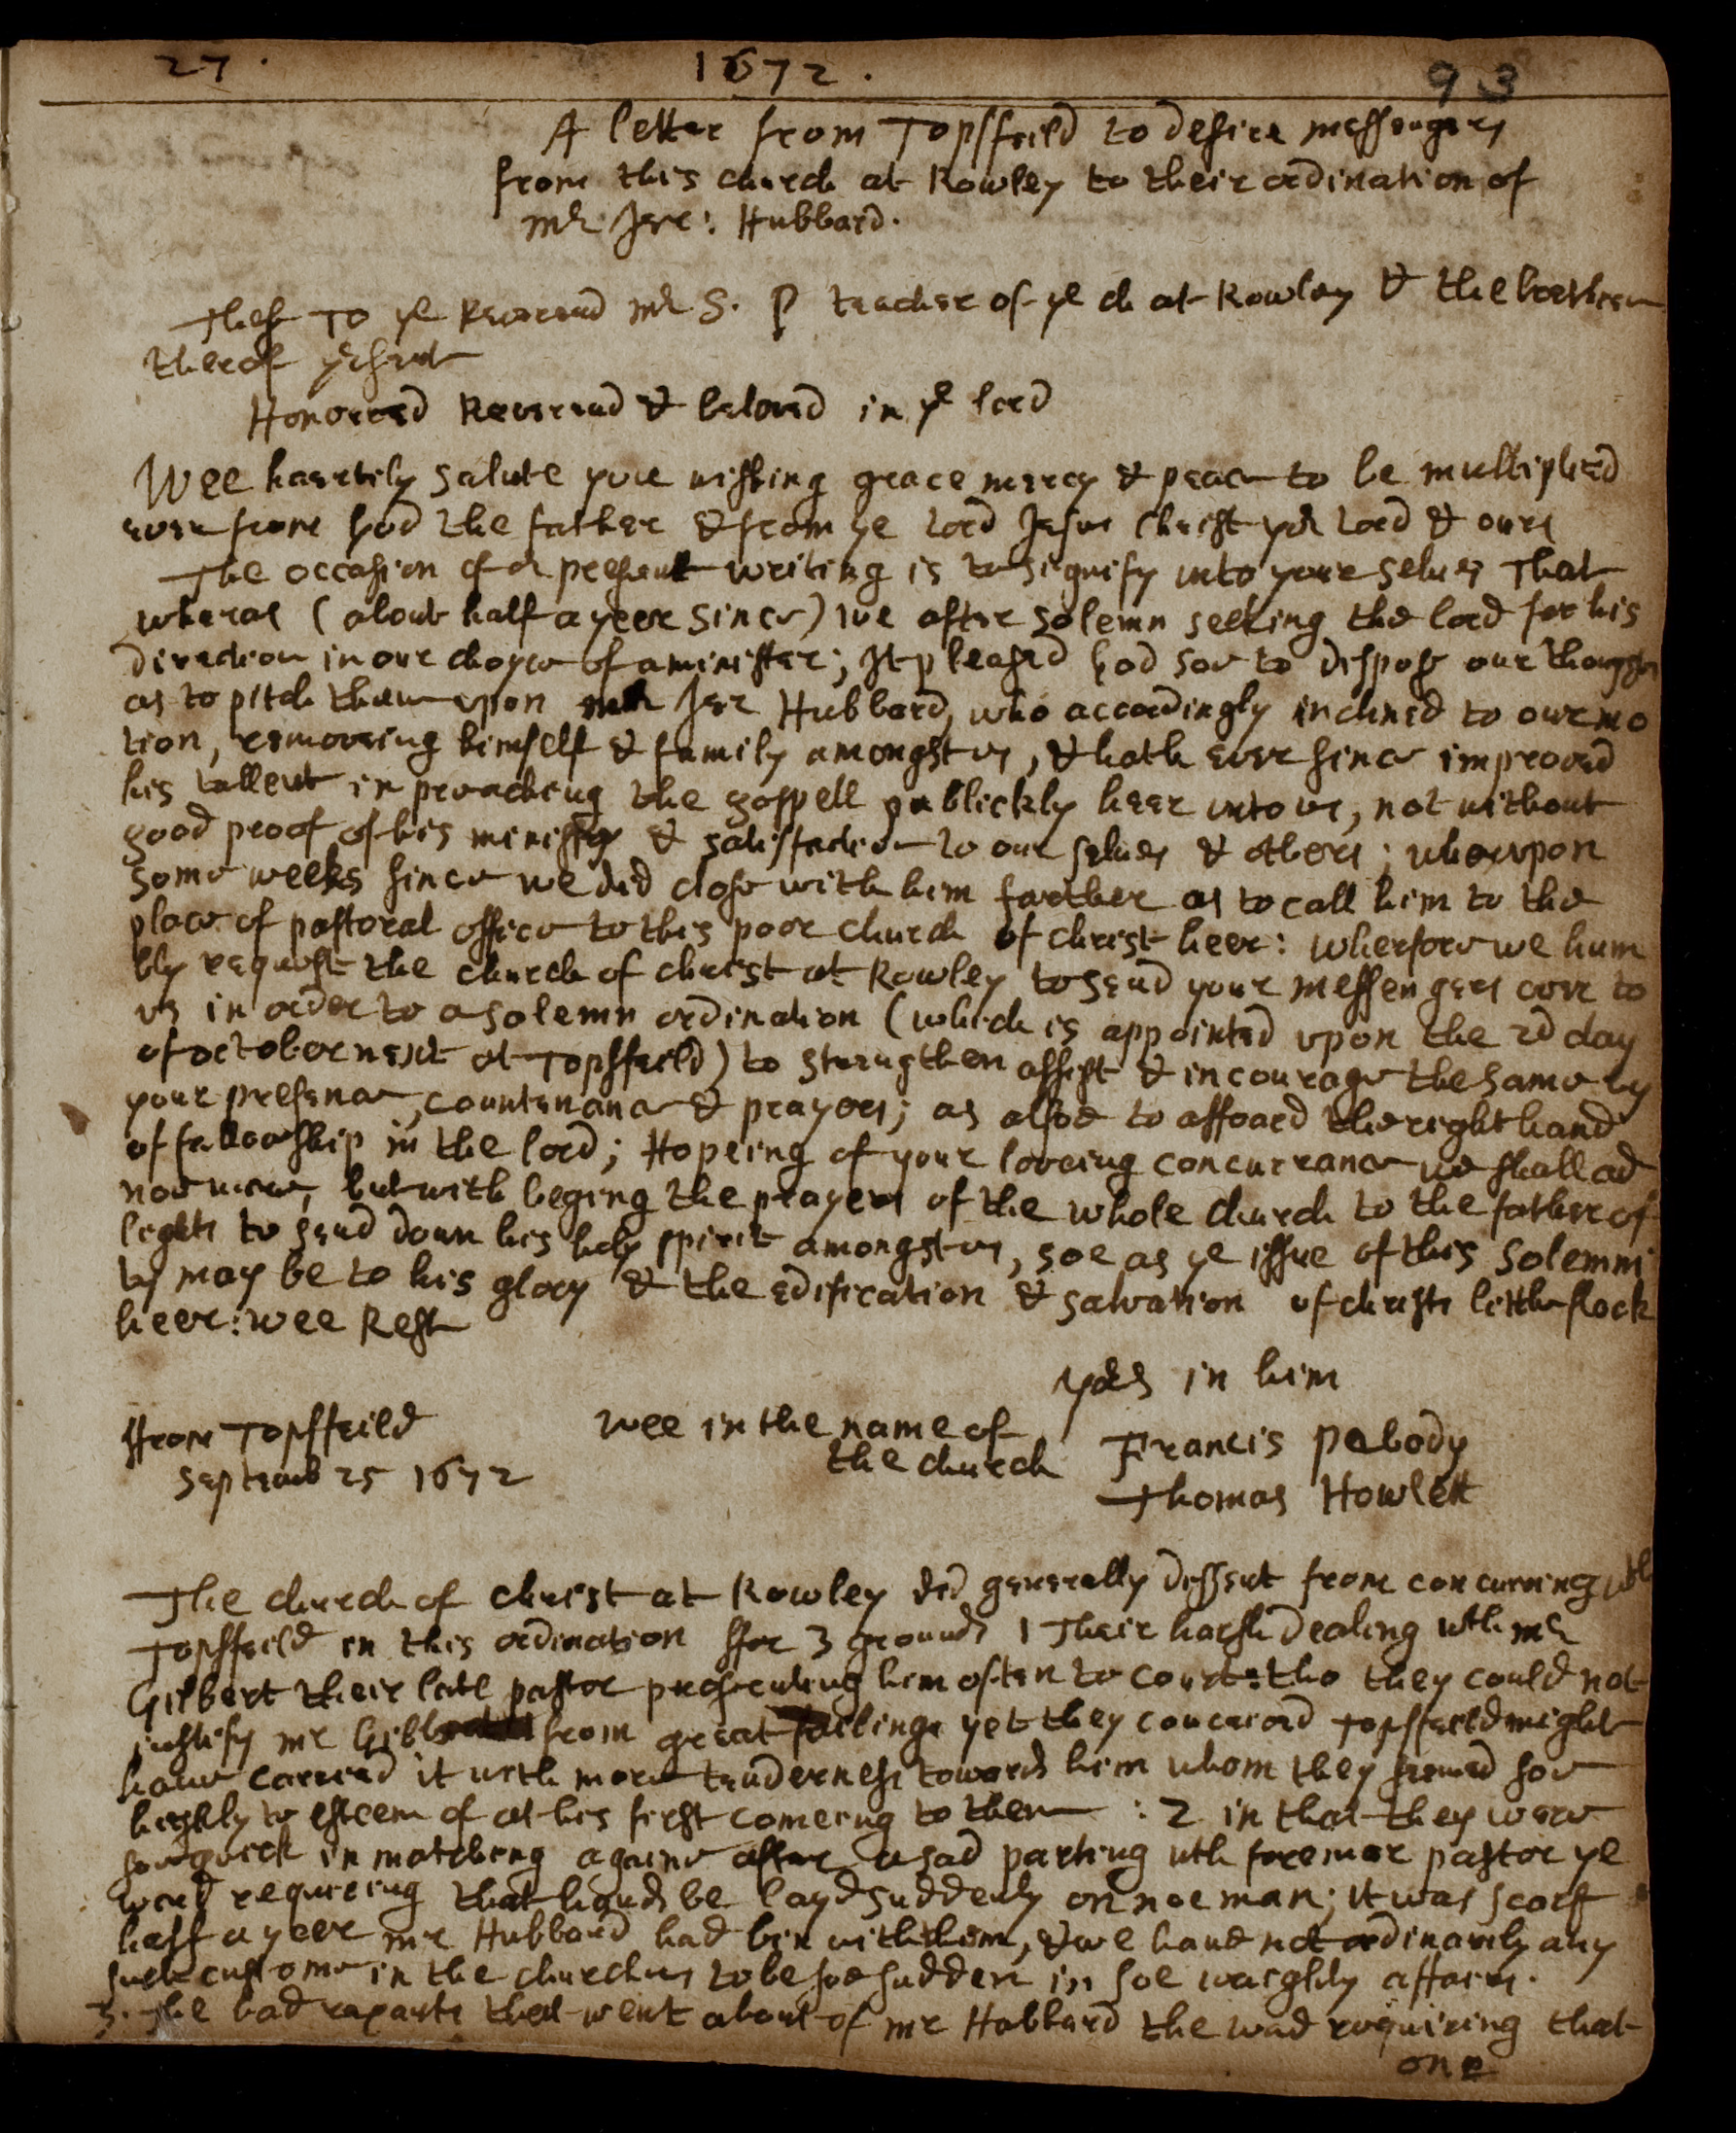 27. 1672. 93
A letter from Topsfeild to desire messengers
from this church at Rowley to their ordination of
mr Jere: Hubbard.
These To ye Reverend mr S. P teacher of ye ch at Rowley & the brethren
therof prsent
Honored Reverend & beloved in ye lord
Wee heartily salute you wishing grace mercy & peace to be multiplied
even from God the father & from ye Lord Jesus Christ yor Lord & ours
The occasion of or present writing is to signify unto your selues That
wheras (about half a yeer since) we after solemn seeking the lord for his
direction in our choyce of a minister; It pleased God soe to dispose our thoughts
as to pitch them upon mr Jer Hubbard, who accordingly inclined to our mo
tion, remooving himself & family amongst us, & hath ever since improoved
his tallent in preaching the gospell publickly heer unto us, not without
good proof of his ministry & satisfaction to our selues & others; wherupon
some weeks since we did close with him farther as to call him to the
place of pastoral office to this poor church of christ heer: wherfore we hum
bly request the church of christ at Rowley to send your messengers over to
us in order to a solemn ordination (which is appointed upon the 2d day
of october next at Topsfeild) to strengthen assist & incourage the same by
your presence, countenance & prayers; as alsoe to affoard the right hand
of fellowship in the lord; Hopeing of your loveing concurrance we shall ad
noe more, but with beging the prayers of the whole church to the father of
lights to send down his holy spirit amongst us, soe as ye issue of this solemni
ty may be to his glory & the edification & salvation of christs little flock
heer: wee Rest
yors in him
ffrom Topsfeild wee in the name of Francis Pebody
Septemb 25 1672 the church Thomas Howlett
The church of christ at Rowley did generally dissent from concurring wth
Topsfeild in this ordination ffor 3 grounds 1 Their harsh dealing wth mr
Gilbert their late pastor prosecuting him often to court: tho they could not
justify mr Gilb from great failings yet they conceived Topsfeild might
haue carried it with more tenderness towards him whom they seemed soe
highly to esteem of at his first comeing to them : 2 in that they were
soe quick in matching againe after a sad parting wth foremer pastor ye
word requireing that hands be layd suddenly on noe man; it was scarse
half a yeer mr Hubbard had bin with them, & we haue not ordinarily any
such custome in the churches to be soe sudden in soe waighty affaires.
3. The bad reports that went about of mr Hubbard the word requiring that
one